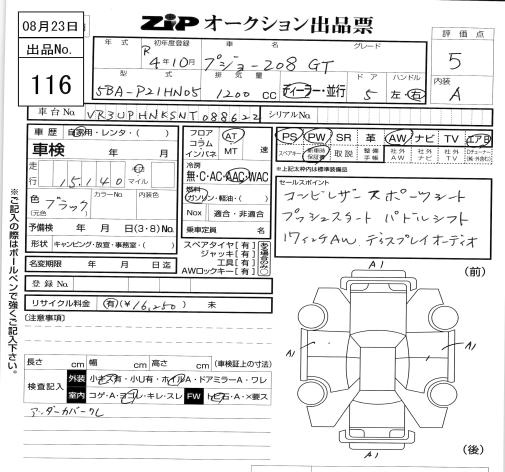 08月23日
出品No.
116
ZiPオークション出品票
評価点
5
内装
A
年式 初年度登録 車名 グレード
R 4年10月 プジョー208 GT
型式 排気量 ドア ハンドル
5BA-P21HN05 1200 cc ディーラー・並行 5 左・右
車台No. VR3UPHNKSNT088622 シリアルNo.
車歴 自家用・レンタ・( )
車検 年 月
走行 15,140 km マイル
色 ブラック カラーNo. 内装色
(元色)
予備検 年 月(3・8)No.
形状 キャンピング・放宣・事務室・( )
名変期限 年 月 日迄
登録No.
フロア コラム インパネ AT MT 速
冷房
無・C・AC・AAC・WAC
燃料
ガソリン・軽油・( )
Nox 適合・非適合
乗車定員 名
スペアタイヤ[有]
ジャッキ[有]
工具[有]
AWロックキー[有]
ある場合のみ○
PS PW SR 革 AW ナビ TV エアB
スペアキー 新車時保証書 取説 整備手帳 社外AW 社外ナビ 社外TV
※上記太枠内は標準装備品
セールスポイント
コンビレザースポーツシート
プッシュスタート パドルシフト
17インチAW ディスプレイオーディオ
リサイクル料金 有(¥16,250) 未
[注意事項]
長さ cm 幅 cm 高さ cm (車検証上の寸法)
検査記入 外装 小キズ有・小U有・ホイルA・ドアミラーA・ワレ
室内 コゲ・A・ヨゴレ・キレ・スレ FW トビ石・A・×要ス
アンダーカバーワレ
※ご記入の際はボールペンで強くご記入下さい。
A1
(前)
A1
A1
A1
(後)